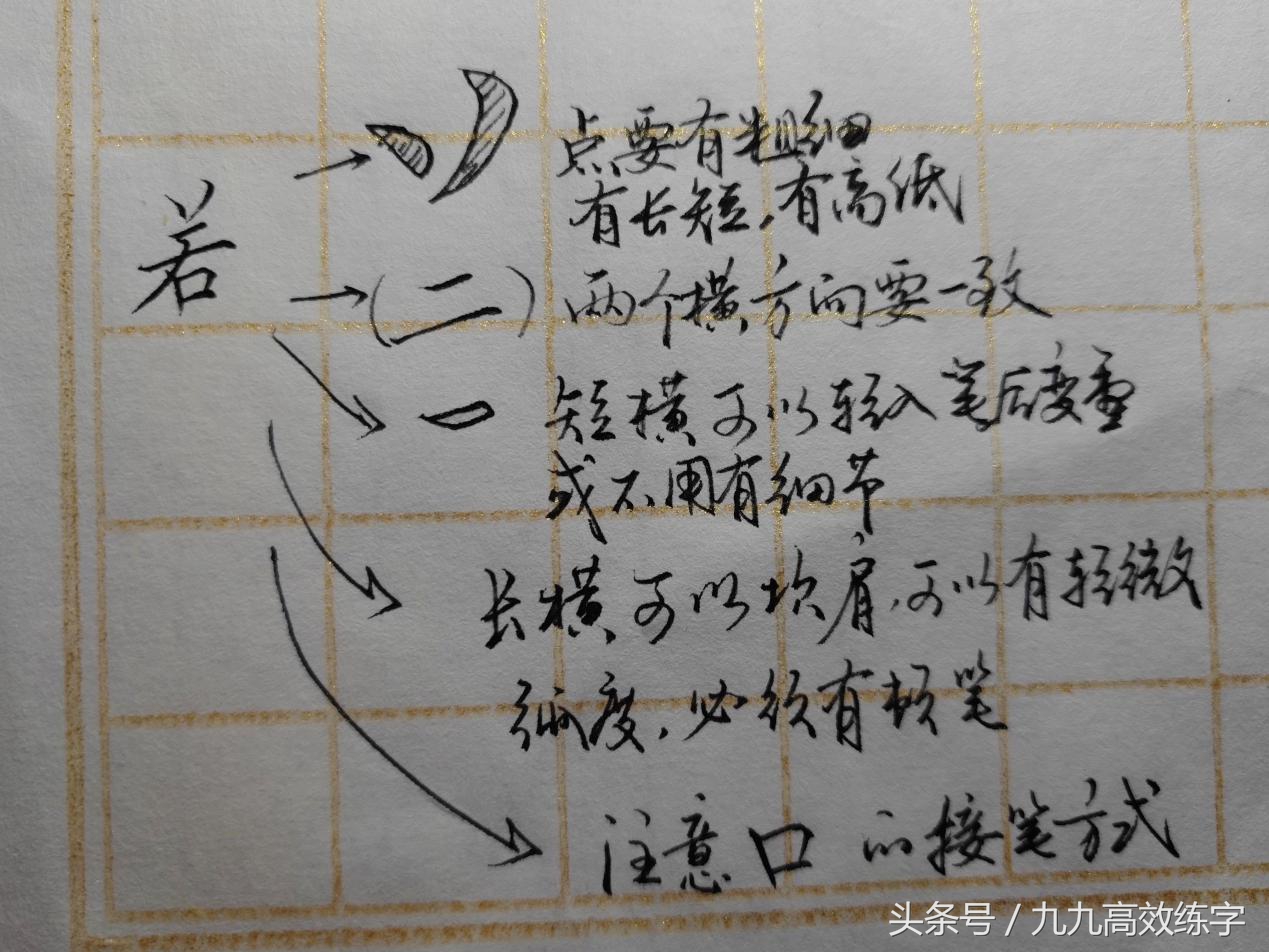 点要有粗细
有长短,有高低
若
(二)两个横方向要一致
短横可以轻入笔后变重
或不用有细节
长横可以坎肩,可以有轻微
弧度,必须有顿笔
注意口的接笔方式
头条号/九九高效练字